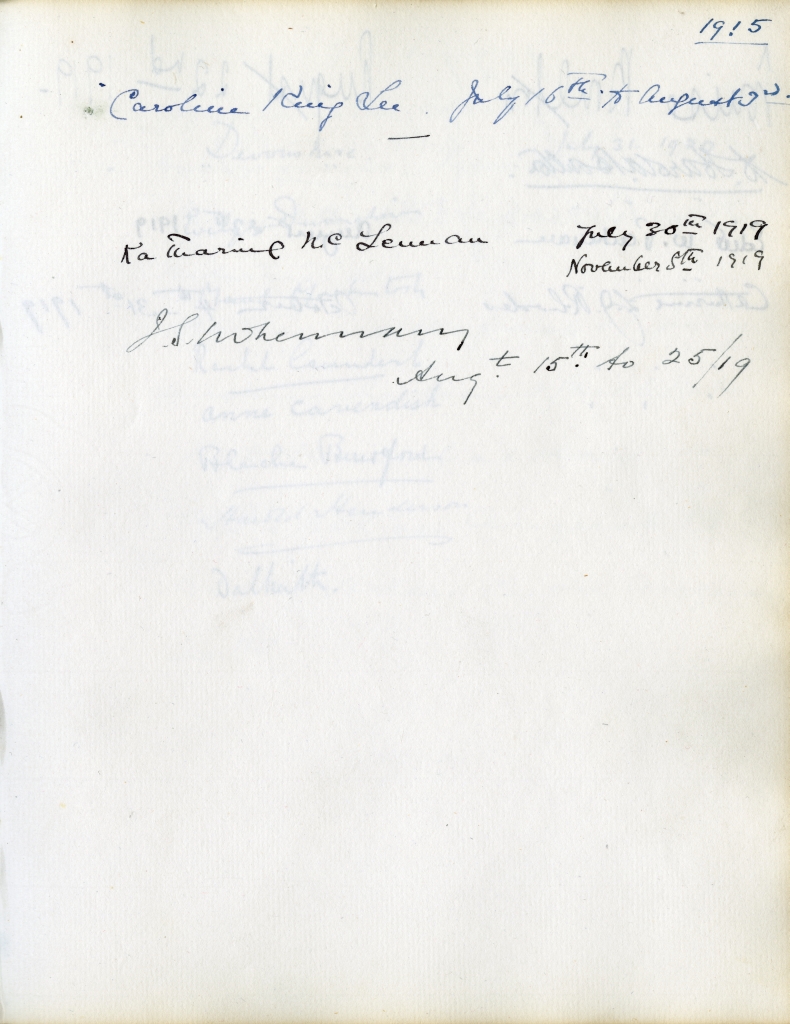 1915
Caroline King Lee July 16th to August 2nd.
Katharine McLennan July 30th 1919
November 8th 1919
J. S.
Augt. 15th. to 25/19